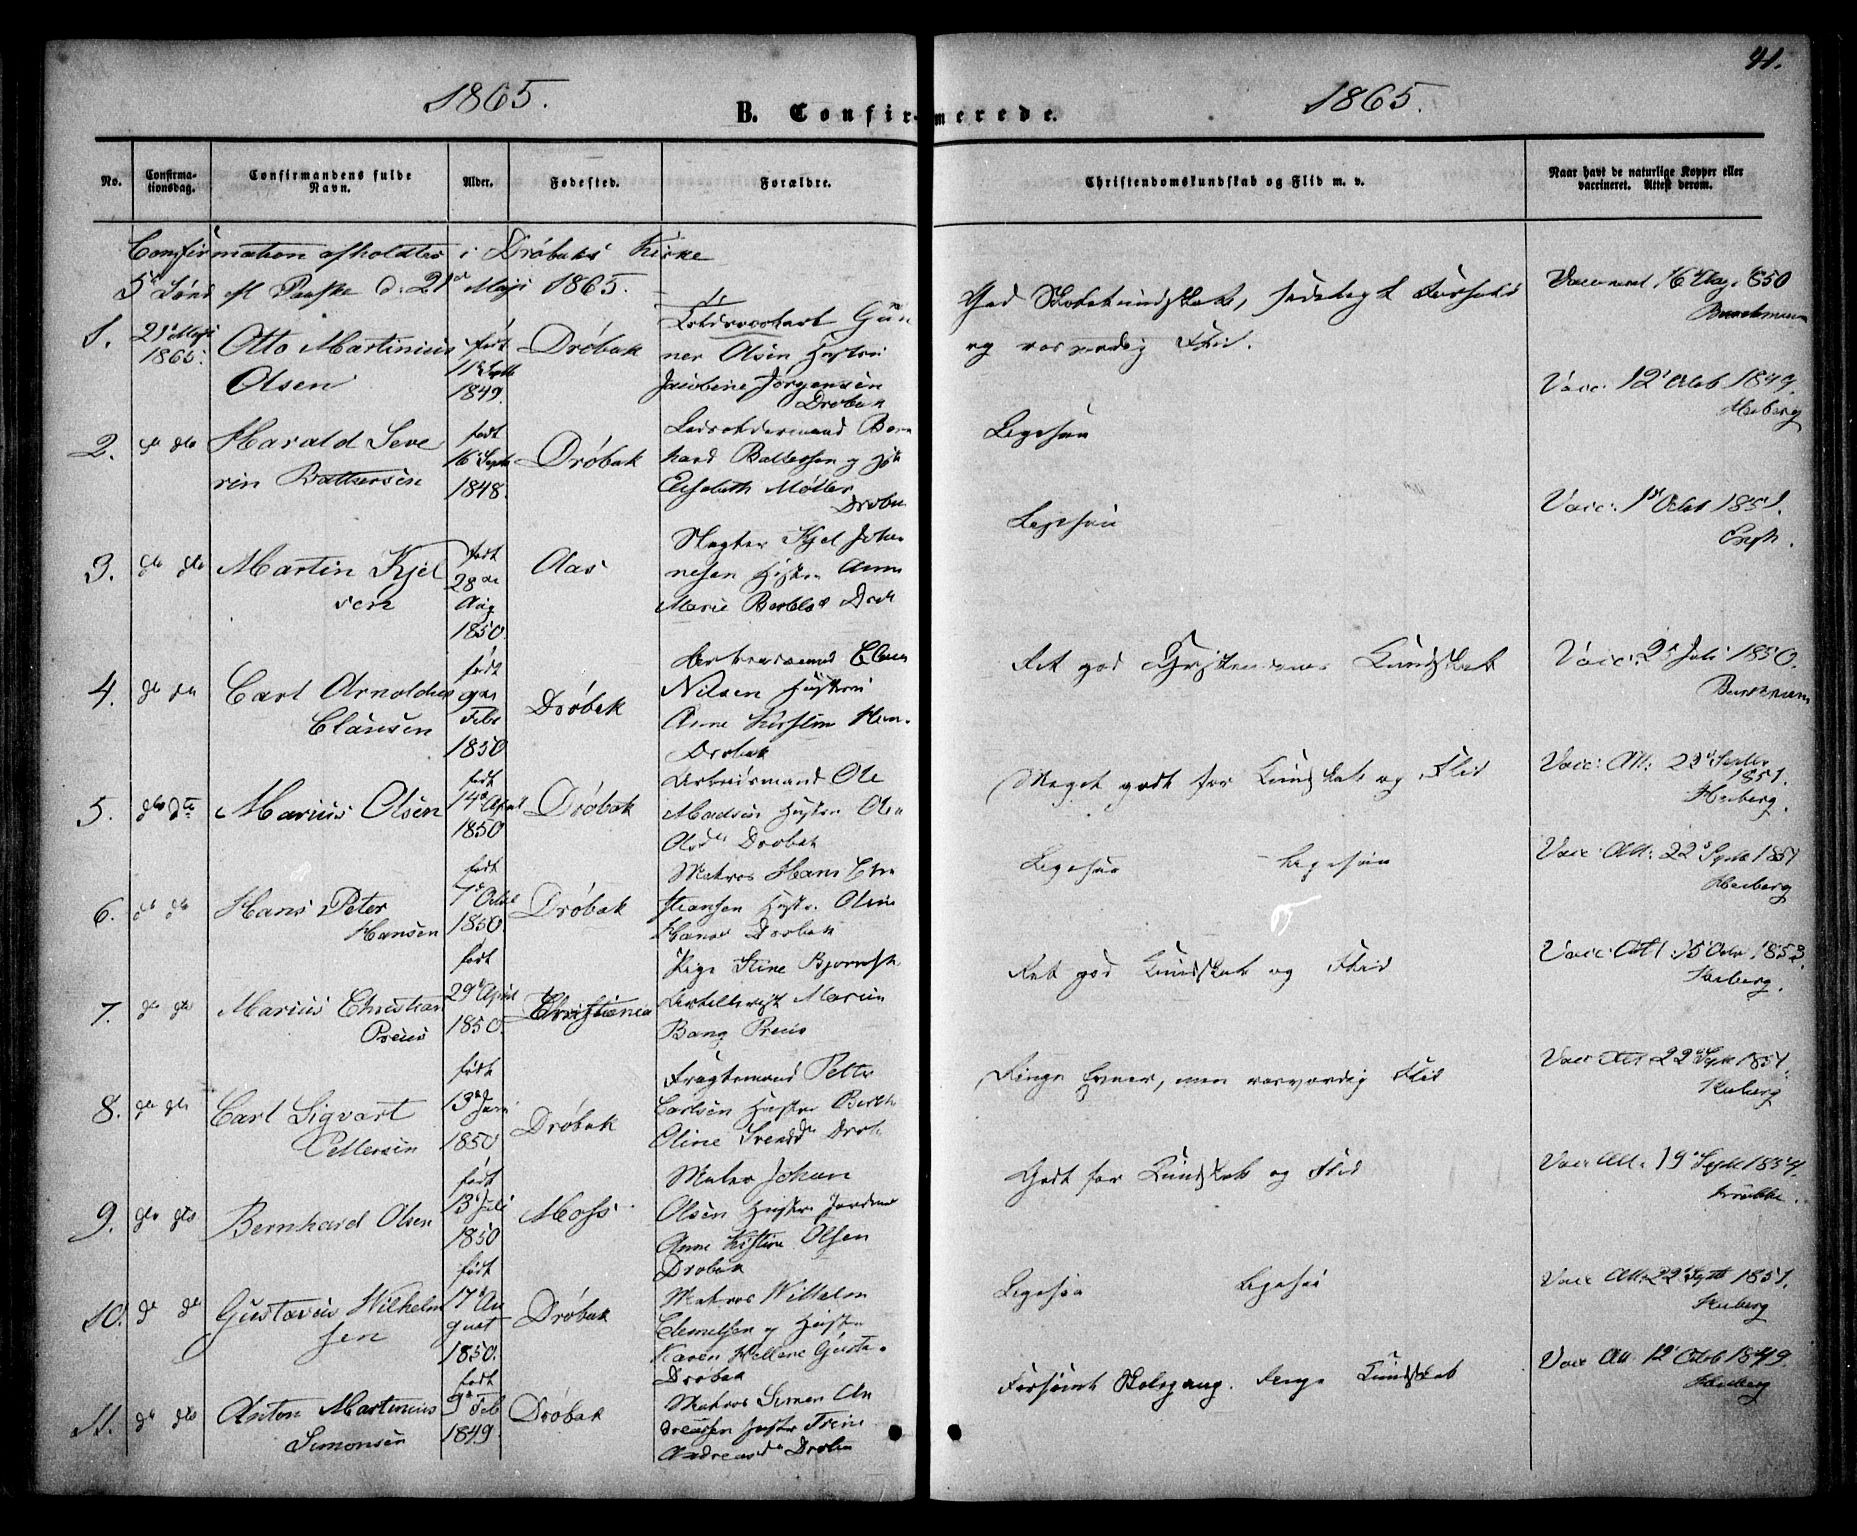 41.
1865.
1865.
B. Confirmerede.
No.
Confirma-
tionsdag.
Confirmandens fulde
Navn.
Alder.
Fødested.
Forældre.
Christendomskundskab og Flid m. v.
Naar havt de naturlige Kopper eller
vaccineret. Attest derom.
Confirmation afholdtes i Drøbaks Kirke
5te Sønd ef Paaske d. 21de Maji 1865.
1.
21de Maji
1865.
Otto Martinius
Olsen
født
11te Septb
1849.
Drøbak
Gun
ner Olsen Hustru
Jacobine Jørgensen
Drøbak
God Skolekundskab, sædeligt Forhold
og Flid.
16 Maj 1850
2.
do do
Harald Seve
rin Baltersen
født
16 Septb
1848.
Drøbak
Bern
hard Baltersen og
Elisabeth Møller
Drøbak
Ligesaa
Vacc: 12te Octb 1849.
Heiberg
3.
do do
Martin Kjel
sen
født
28de
Aug
1850.
Aas
Slagter Kjel Johan
nesen Hustru Anne
Marie
Ligesaa
Vacc: 1ste Octb 1851.
4.
do do
Carl Arnoldus
Clausen
født
9de
Febr
1850
Drøbak
Nilsen Hustru
Anne Kirstine
Drøbak
Ret god Christendoms Kundskab
Vacc: 2de Juli 1850.
5.
do do
Marius Olsen
født
14de April
1850
Drøbak
Arbeidsmand Ole
Madsen Hustru
Drøbak
Meget godt for Kundskab og Flid
Vacc: Att: 22de Septbr
1851.
Heiberg.
6.
do do
Hans Peter
Hansen
født
7de
1850.
Drøbak
Matros Hans Chri
stiansen Hustru Oline
Drøbak
Ligesaa Ligesaa
Vacc: Att: 22de Septb 1851
Heiberg
7.
do do
Marius Christian
Preus
født
29de April
1850.
Christiania
Pige Stine Bjørnsk
Artillerist Marius
Bang Preus
Ret god Kundskab og Flid
Vacc: Att 15 Octbr 1853.
Heiberg.
8.
do do
Carl Sigvart
Pettersen
født
13de Juni
1850
Drøbak
Fragtemand Petter
Carlsen Hustru Berthe
Oline Svendsd Drøb
Ringe Evner, men Flid
Vacc Att 22de Septb 1851.
Heiberg
9.
do do
Bernhard Olsen
født
13de Juli
1850
Moss.
Maler Johan
Olsen Hustru
Anne Kistine Olsen
Drøbak
Godt for Kundskab og Flid
Vacc Att: 19de Septb
10.
do do
Gustavus Wilhelm
sen
født
17de Au
gust
1850.
Drøbak
Matros Wilhelm
og Hustru
Karen Hellene
Drøbak
Ligesaa Ligesaa
Vacc Att: 22de Septb 1851.
Heiberg
11.
do do
Anton Martinius
Simonsen
født
9de Feb
1849
Drøbak
Matros Simen An
dreassen Hustru Trine
Andreasd Drøbak
Forsømt Skolegang. Ringe Kundskab
Vacc Att 12te Octb 1849.
Heiberg